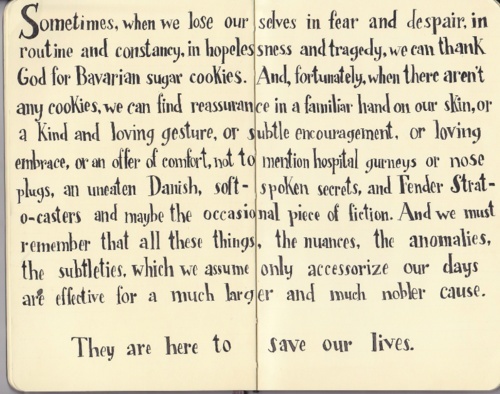 Sometimes, when we lose our selves in fear and despair, in
routine and constancy, in hopelessness and tragedy, we can thank
God for Bavarian sugar cookies. And, fortunately, when there aren't
any cookies, we can find reassurance in a familiar hand on our skin, or
a kind and loving gesture, or subtle encouragement, or loving
embrace, or an offer of comfort, not to mention hospital gurneys or nose
plugs, an uneaten Danish, soft-spoken secrets, and Fender Strat-
o-casters and maybe the occasional piece of fiction. And we must
remember that all these things, the nuances, the anomalies,
the subtleties, which we assume only accessorize our days
are effective for a much larger and much nobler cause.
They are here to save our lives.